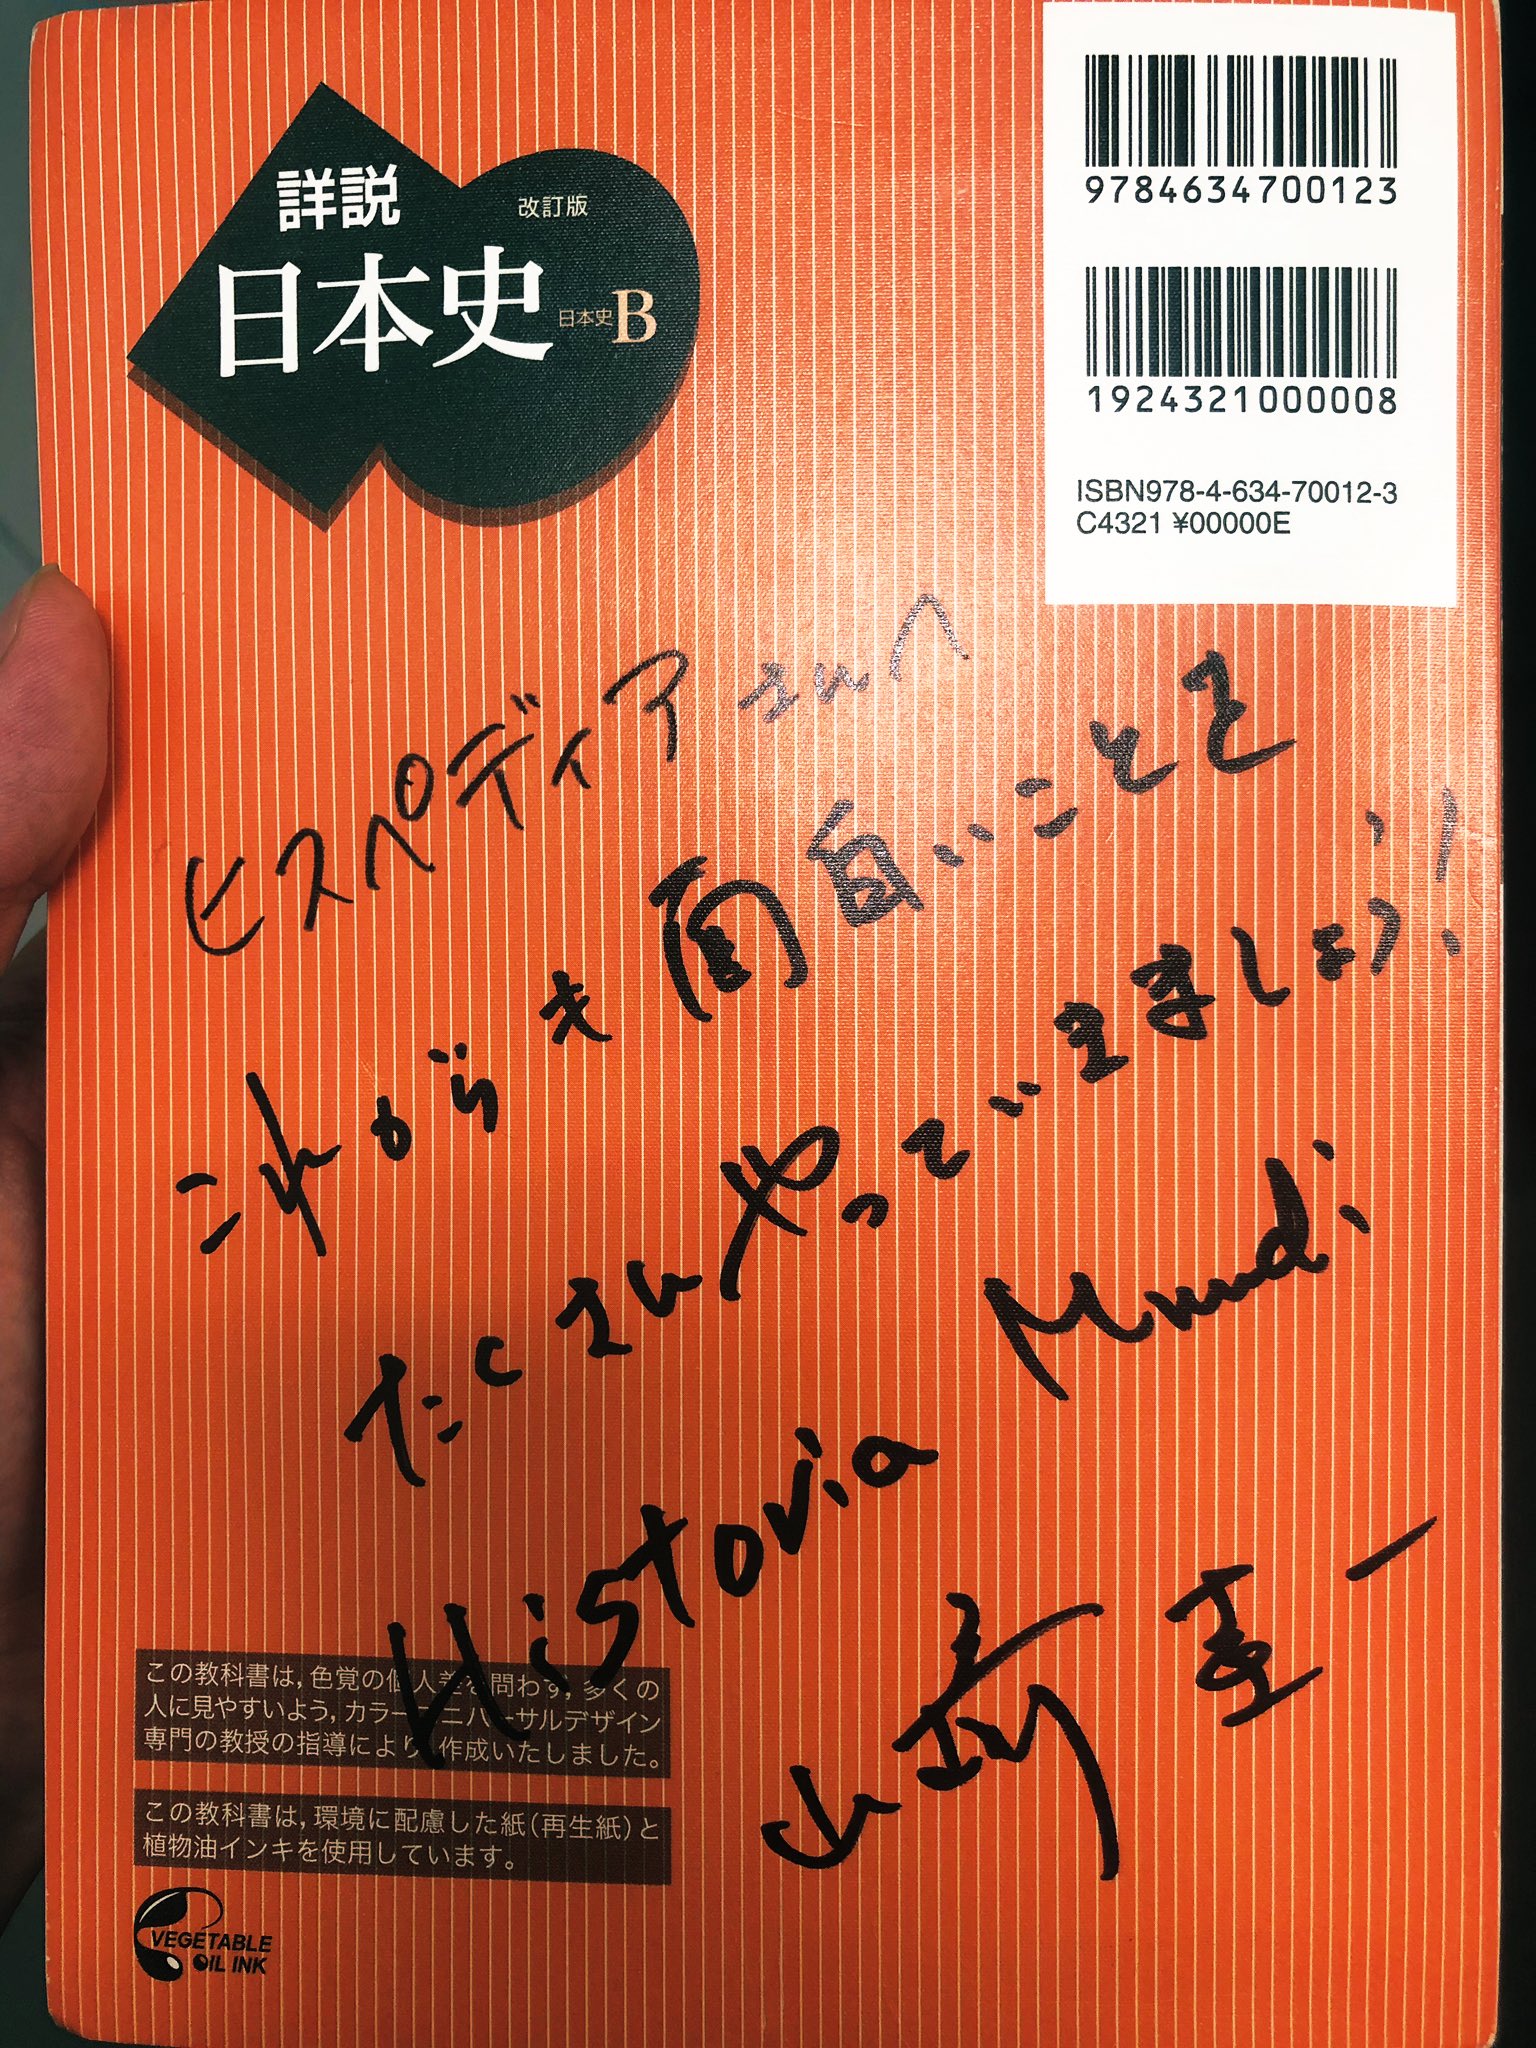 詳説
改訂版
日本史
日本史B
9784634700123
1924321000008
ISBN978-4-634-70012-3
C4321 ¥00000E
ヒスペディアさんへ
これからも面白いことを
たくさんやっていきましょう!
Historia Mundi
山﨑圭一
この教科書は,色覚の個人差を問わず,多くの
人に見やすいよう,カラーユニバーサルデザイン
専門の教授の指導により,作成いたしました。
この教科書は,環境に配慮した紙(再生紙)と
植物油インキを使用しています。
VEGETABLE
OIL INK